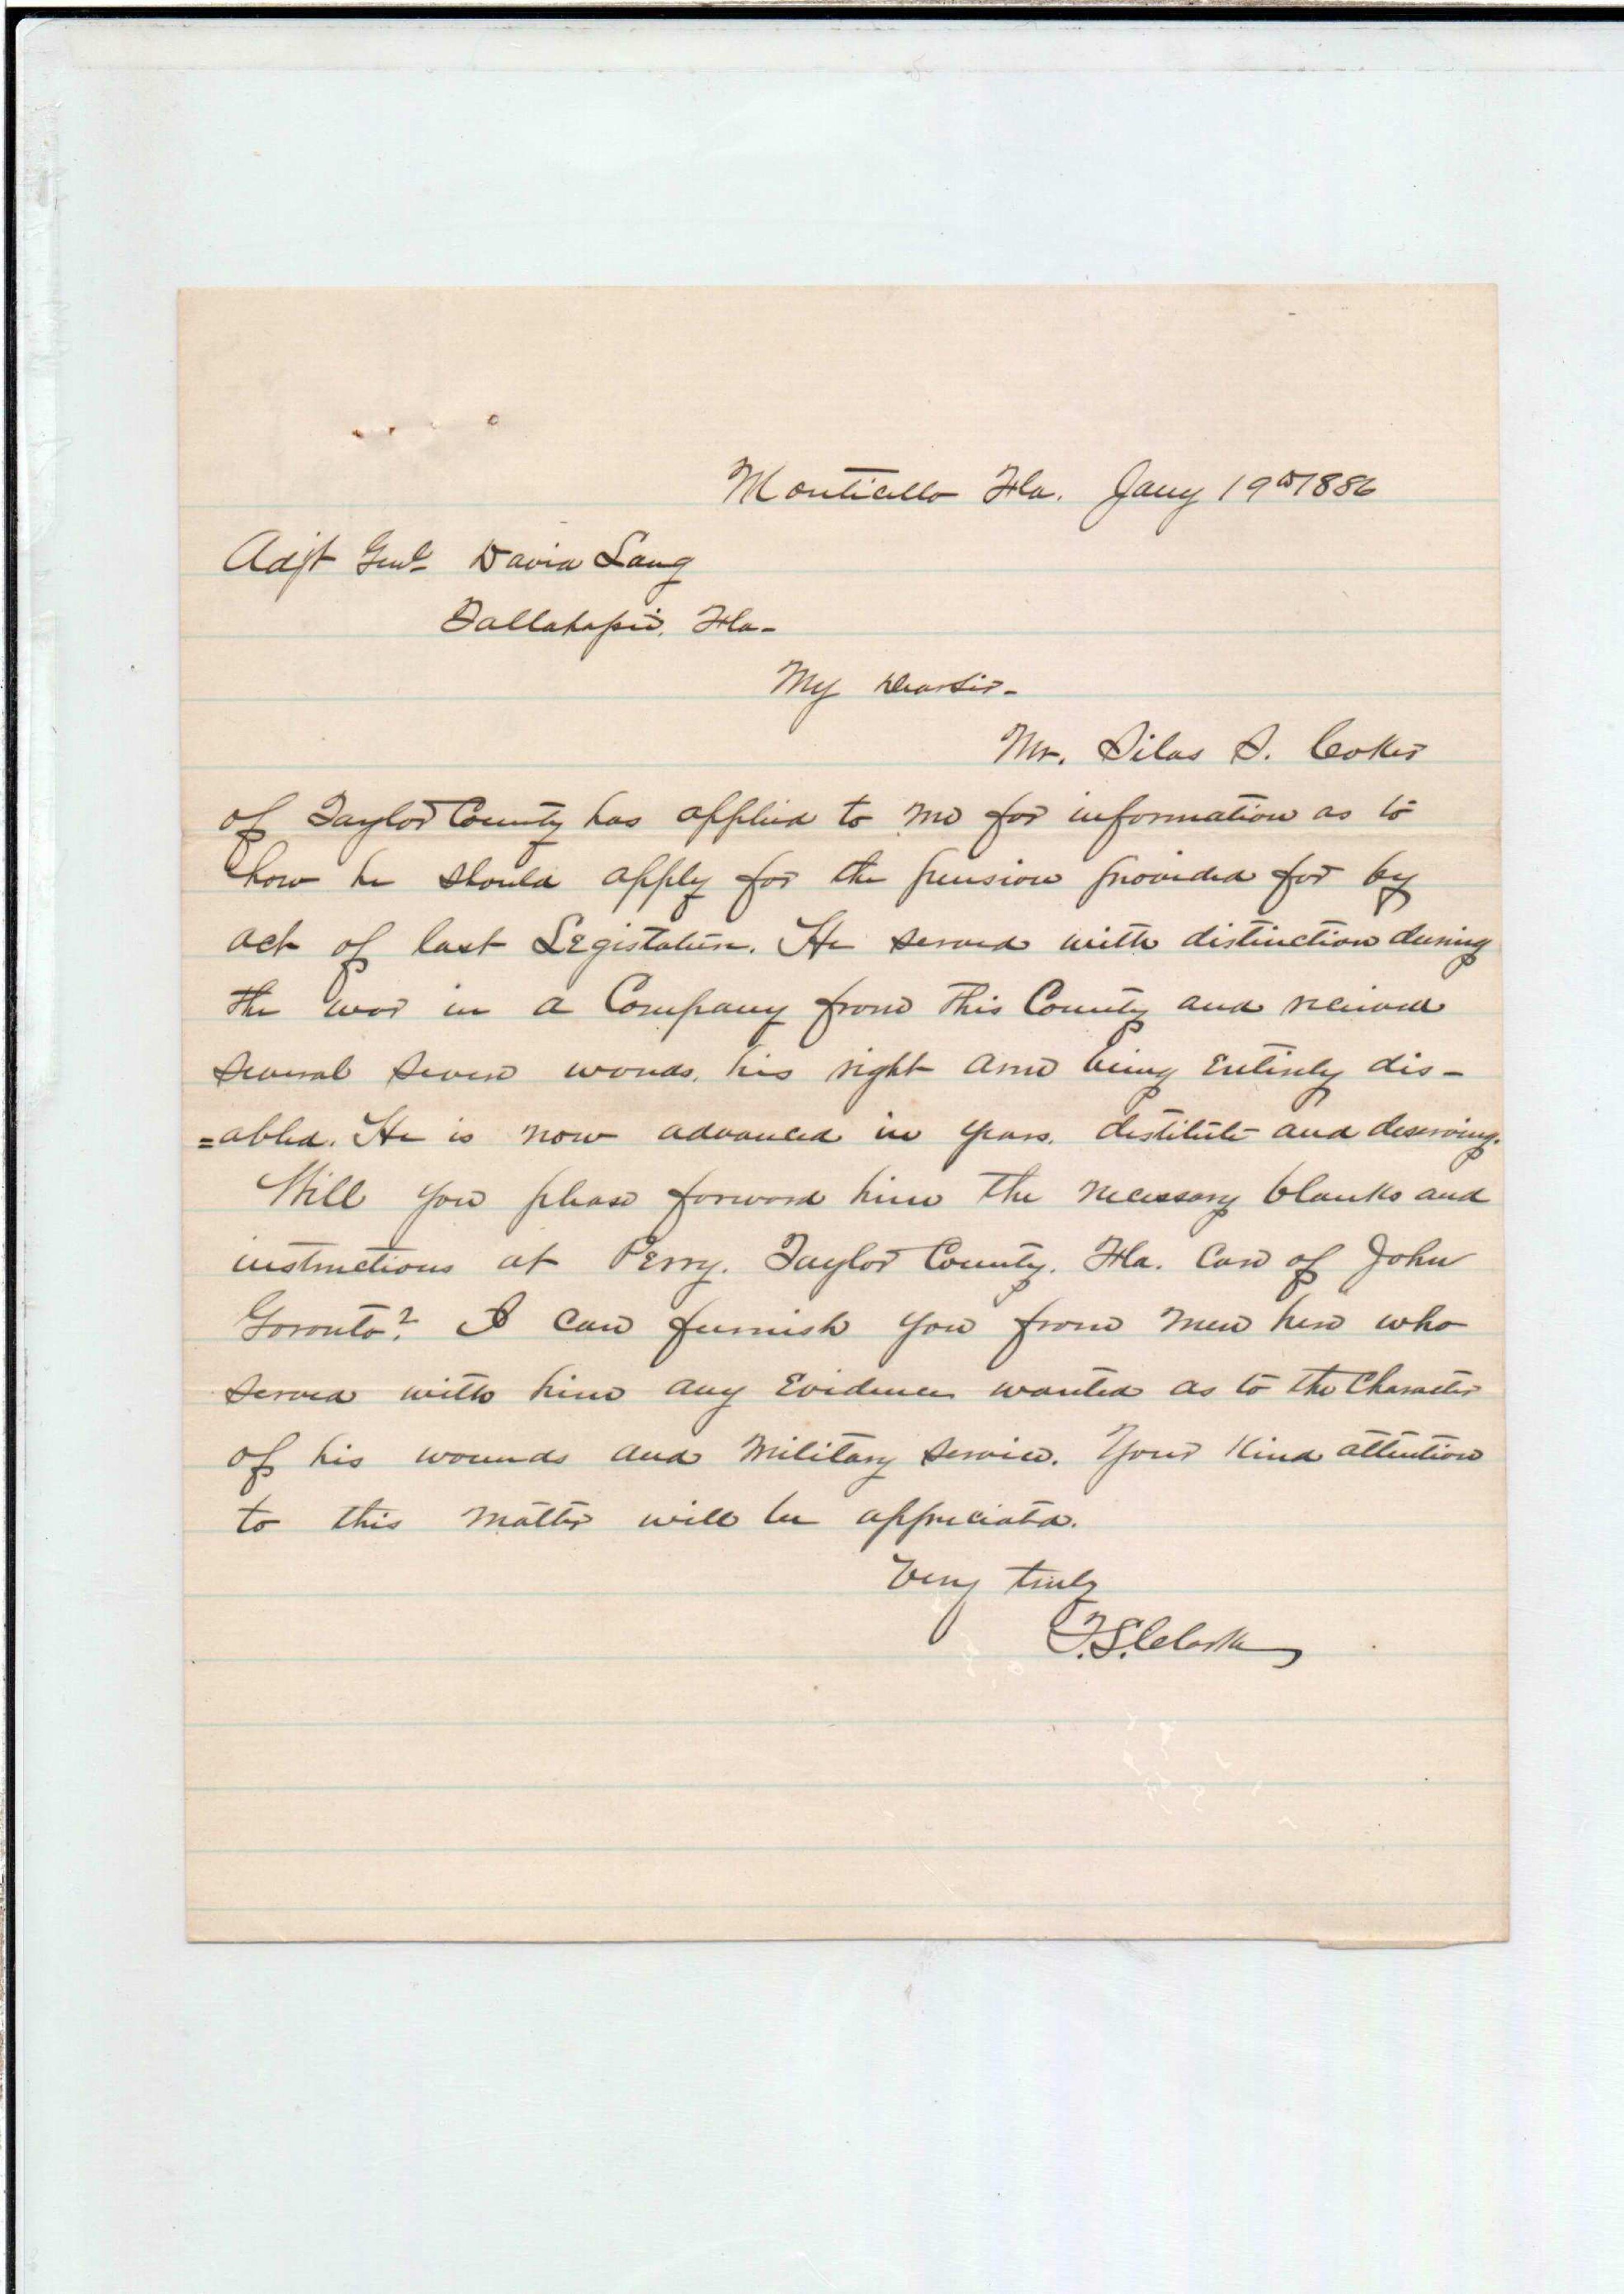 Monticello Fla. Jany 19th 1886
Adjt Genl David Lang
Tallahassee, Fla-
My Dear Sir-
Mr. Silas S. Coker
of Taylor County has applied to me for information as to
how he should apply for the pension provided for by
act of last Legislature. He served with distinction during
the war in a Company from this County and received
several severe wonds, his right arm being Entirely dis-
=abled. He is now advanced in years, destitute and deserving.
Will you please forward him the necessary blanks and
instructions at Perry, Taylor County, Fla. Care of John
I can furnish you from men here who
served with him any Evidence wanted as to the Character
of his wounds and Military service. Your kind attention
to this matter will be appreciated.
Very truly
T. S. Clark